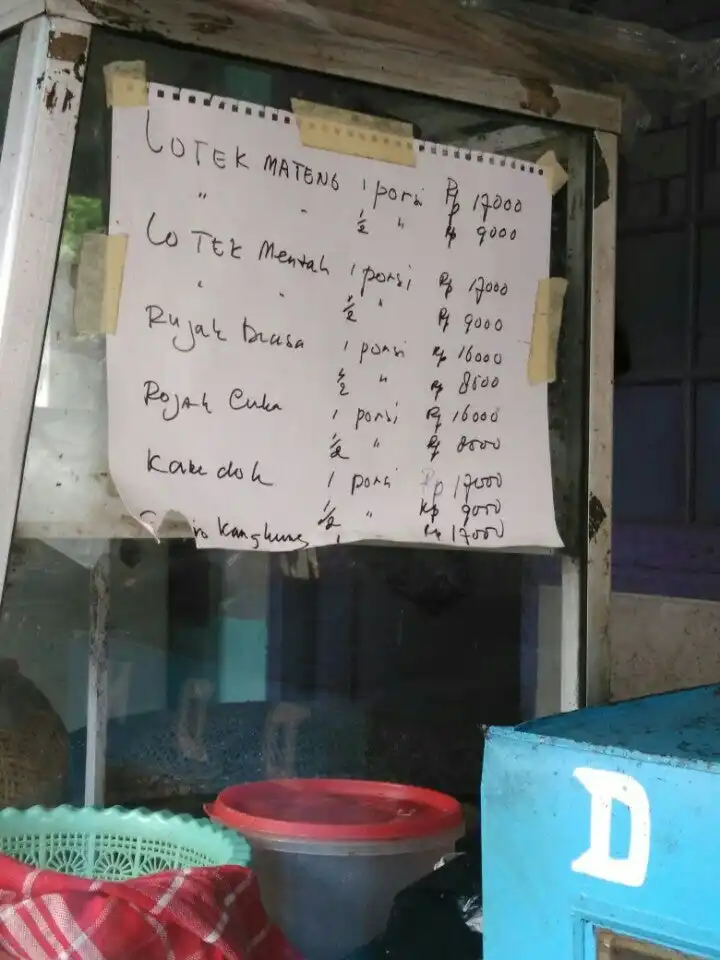 LOTEK MATENG 1 porsi Rp 17000
" " 1/2 " Rp 9000
LOTEK Mentah 1 porsi Rp 17000
" " 1/2 " Rp 9000
Rujak biasa 1 porsi Rp 16000
1/2 " Rp 8500
Rojak Cuka 1 porsi Rp 16000
1/2 " Rp 8500
Karedok 1 porsi Rp 17000
1/2 " Rp 9000
Kangkung Rp 17000
D